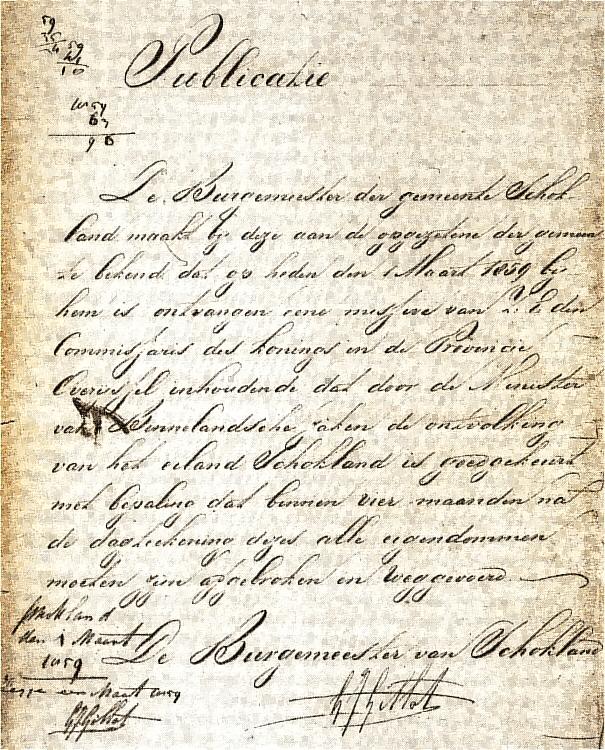 59
10
Publicatie
1859
90
De Burgemeester der gemeente Schok
land maakt bij deze aan de opgezetene der gemeen
te bekend dat op heden den 1 Maart 1859 bij
hem is ontvangen eene missive van Z: E den
Commissaris des konings in de Provincie
Overijssel inhoudende dat door de Minister
van Binnelandsche zaken de ontvolking
van het eiland Schokland is goedgekeurt
met bepaling dat binnen vier maanden na
de dagteekening dezes alle eigendommen
moeten zijn afgebroken en weggevoerd
Schokland
den 1 Maart
1859
De Burgemeester van Schokland
Maart 1859
GJGillot
GJGillot